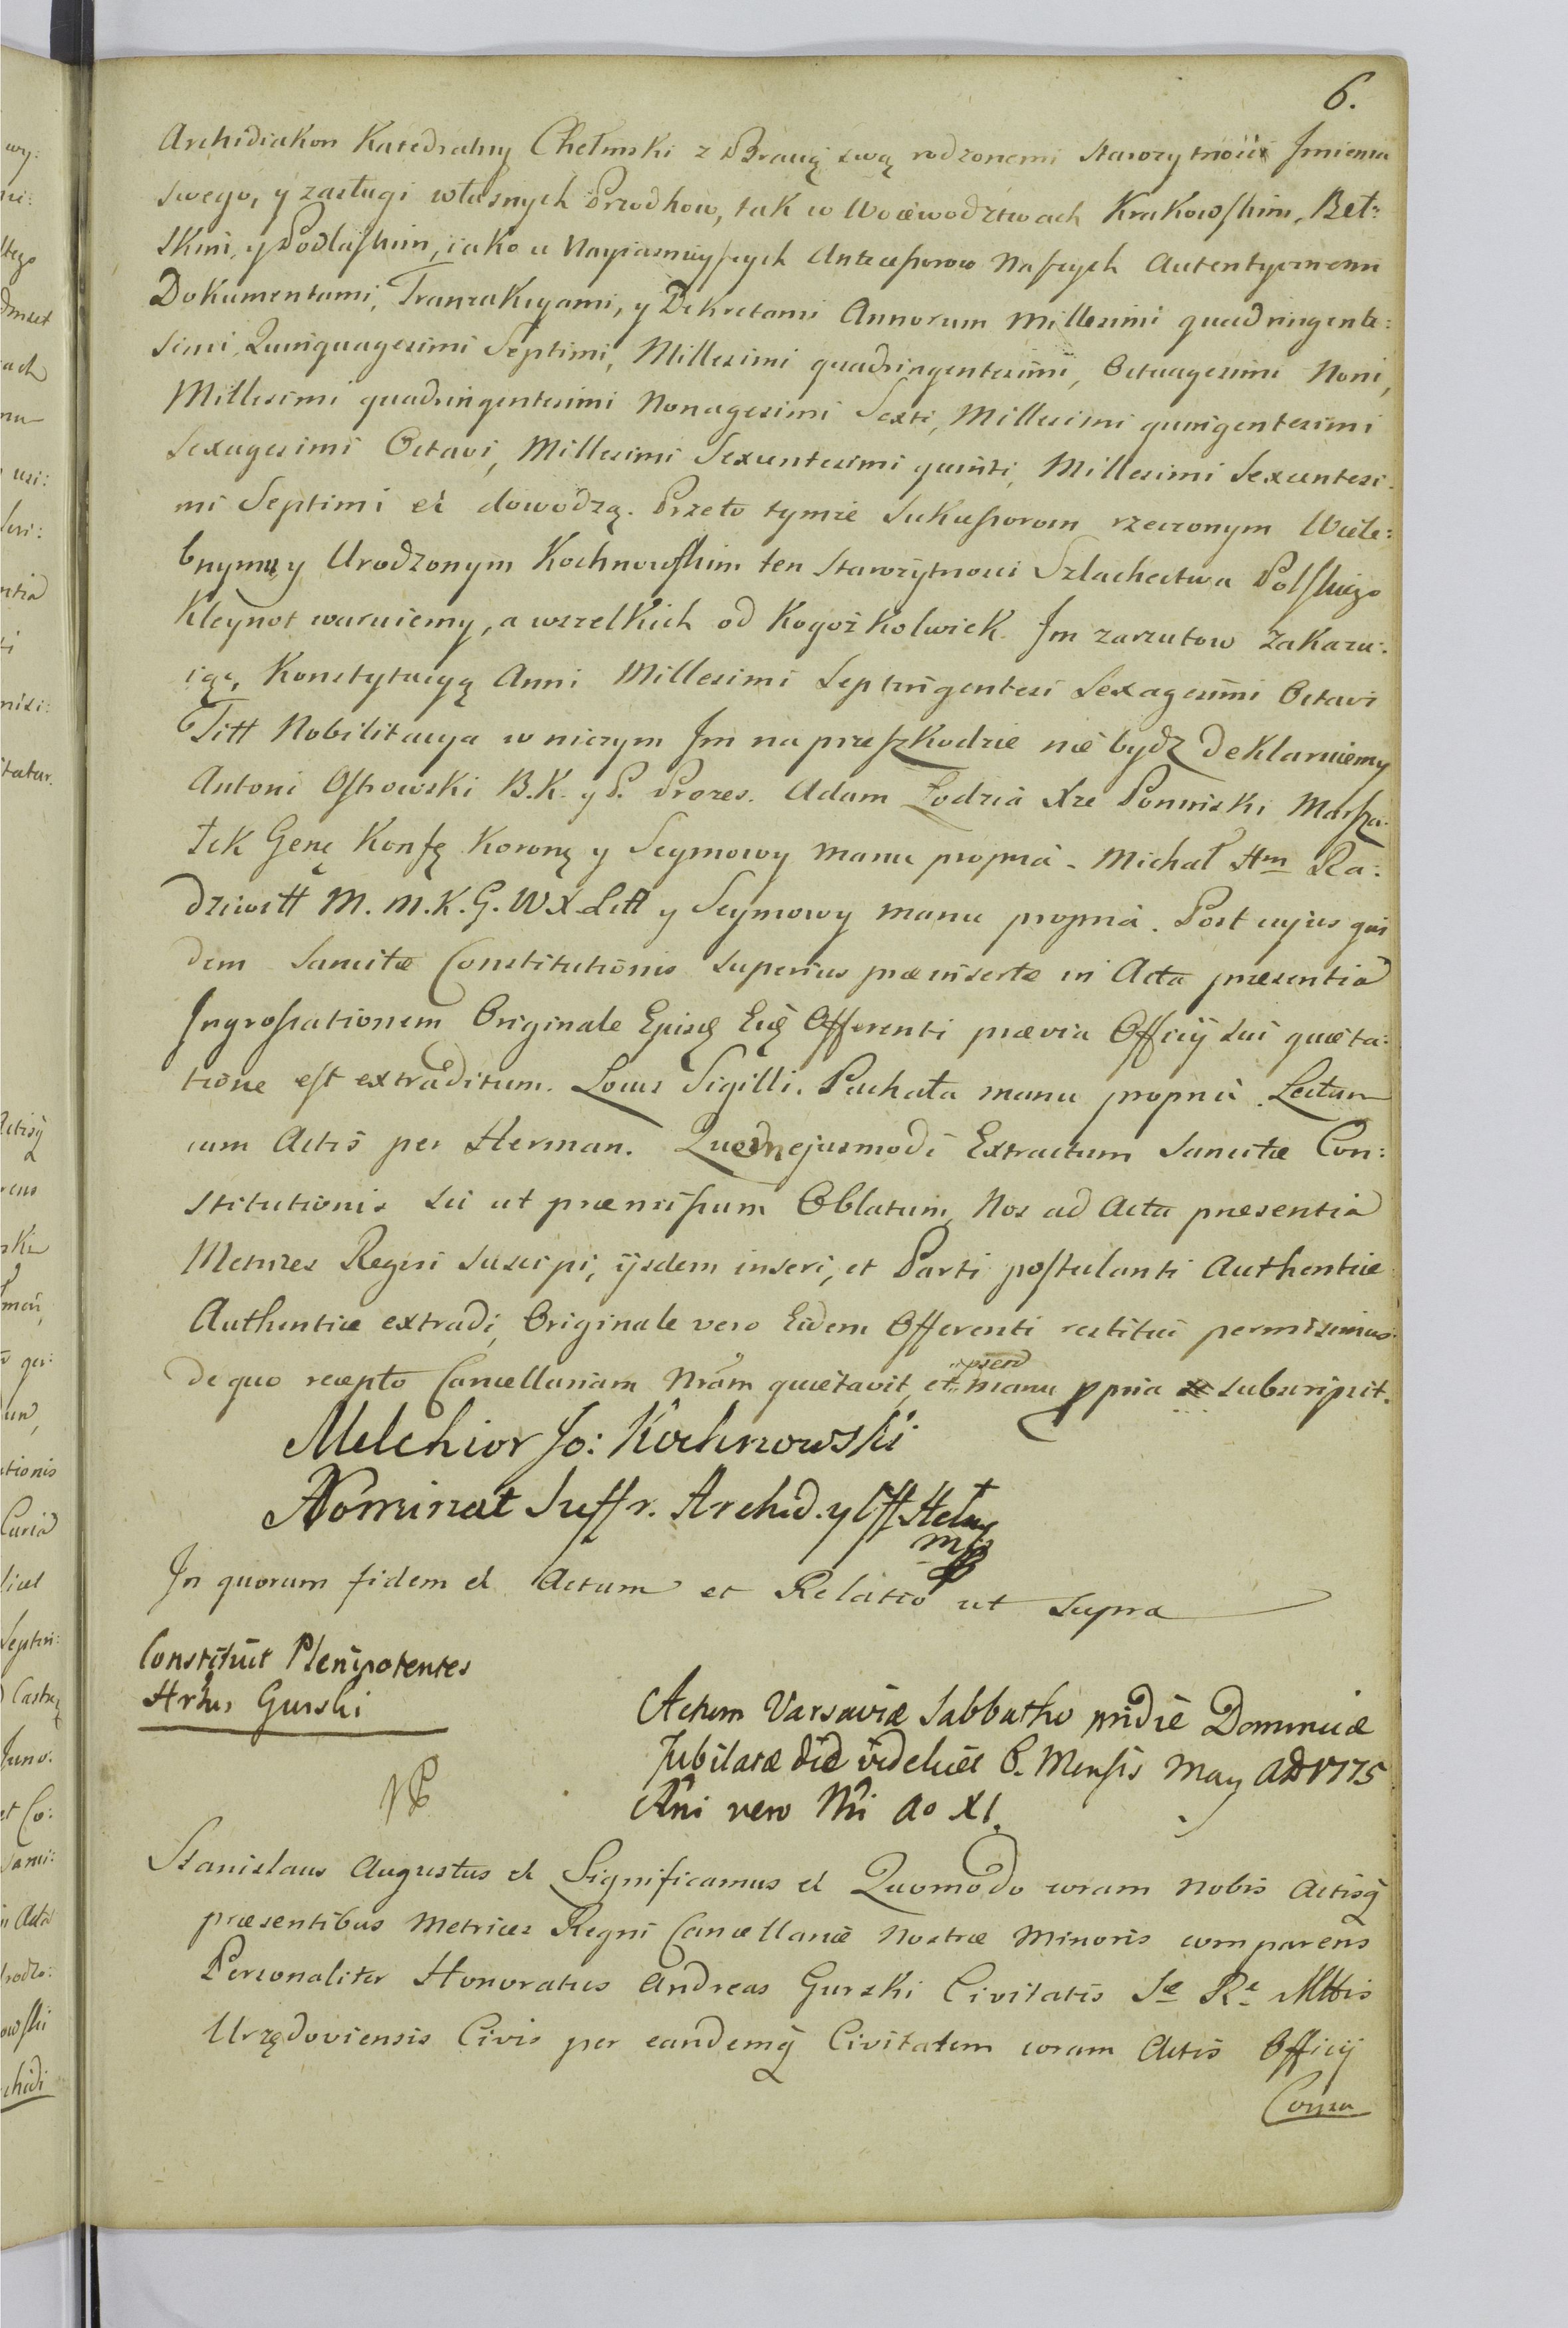 6.
Archidiakon Katedralny Chełmski z Bracią swą rodzonemi starożytności Jmienia
swego, y zasługi własnych Przodkow, tak w Woiewodztwach Krakowskim, Beł:
skim, y Podlaskim, iako u Nayiasnieyszych Antecessorow Naszych Autentycznemi
Dokumentami, Tranzakcyami, y Dekretami Annorum Millesimi quadringente:
simi Quinquagesimi Septimi, Millesimi quadringentesimi, Octuagesimi Noni,
Millesimi quadringentesimi Nonagesimi Sexti, Millesimi quingentesimi
Sexagesimi Octavi, Millesimi Sexcentesimi quinti, Millesimi Sexcentesi:
mi Septimi et dowodzą. Przeto tymże Sukcessorom rzeczonym Wiele:
bnym y Urodzonym Kochnowskim ten starożytności Szlachectwa Polskiego
Kleynot waruiemy, a wszelkich od kogożkolwiek Jm zarzutow zakazu:
iąc, Konstytucyą Anni Millesimi Septingentesi Sexagesimi Octavi
Titt Nobilitacya w niczym Jm na przeszkodzie nie bydz deklaruiemy
Antoni Ostrowski B.K. y P. Prezes. Adam Łodzia Xże Poninski Marsza:
łek Genę Konfę Koronę y Seymowy manu propria. Michał Hm Ra:
dziwiłł M. M. K. G. W X Litt y Seymowy manu propria. Post cujus qui
dem Sancitæ Constitutionis superius præinsertæ in Acta præsentia
Ingrossationem Originale Ejusq̃ Eidẽ Offerenti prævia Officij sui quieta:
tione est extraditum. Locus Sigilli. Puchała manu propria. Lectum
cum Actis per Herman. Quodnejusmodi Extractum Sancitæ Con:
stitutionis sic ut præmissum Oblatum, Nos ad Acta præsentia
Metrices Regni suscipi, ijsdem inseri, et Parti postulanti Authentice
Authentice extradi, Originale vero Eidem Offerenti restitui permisimus
de quo recepto Cancellariam Nrãm quietavit, et manu ppria subscripsit.
Melchior Jo: Kochnowski
Nominat Suffr. Archid. y Off. Chełm
mp
In quorum fidem et Actum et Relatio ut supra
Constituit Plenipotentes
Hrtus Gurski
Actum Varsaviæ Sabbatho pridie Dominicæ
Jubilatæ die videlicet 6. Mensis May AD 1775
Rñi vero Nri Ao XI.
Stanislaus Augustus et Significamus et Quomodo coram Nobis Actisq̃
præsentibus Metrices Regni Cancellariæ Nostræ Minoris comparens
Personaliter Honoratus Andreas Gurski Civitatis Sæ Ræ Mttis
Urzędoviensis Civis per eandemq̃ Civitatem coram Actis Officij
Consu